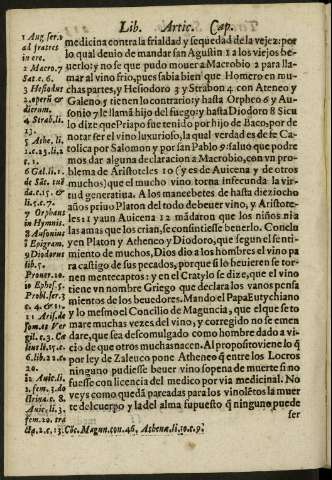 Lib. Artic. Cap.
medicina contra la frialdad y sequedad de la vejez: por
lo qual deuio de mandar san Agustin 1 a los viejos be-
uerlo: y no se que pudo mouer a Macrobio 2 para lla-
mar al vino frio, pues sabia bien que Homero en mu
chas partes, y Hesiodoro 3 y Strabon 4 con Ateneo y
Galeno 5 tienen lo contrario: y hasta Orpheo 6 y Au-
sonio 7 le llamã hijo del fuego: y hasta Diodoro 8 Sicu
lo dize que Priapo fue tenido por hijo de Baco, por de
notar ser el vino luxurioso, la qual verdad es de fe Ca-
tolica por Salomon y por san Pablo 9: saluo que podre
mos dar alguna declaracion a Macrobio, con vn pro-
blema de Aristoteles 10 (y es de Auicena y de otros
muchos) que el mucho vino torna infecunda la vir-
tud generatiua. A los mancebetes de hasta dieziocho
años priuo Platon del todo de beuer vino, y Aristote-
les 11 y aun Auicena 12 mãdaron que los niños ni a
las amas que los crian, se consintiesse beuerlo. Conclu
yen Platon y Atheneo y Diodoro, que segun el senti-
miento de muchos, Dios dio a los hombres el vino pa
ra castigo de sus pecados, porque si lo beuieren se tor-
nen mentecaptos: y en el Cratylo se dize, que el vino
tiene vn nombre Griego que declara los vanos pensa
mientos de los beuedores. Mando el Papa Eutychiano
y lo mesmo el Concilio de Maguncia, que el que se to
mare muchas vezes del vino, y corregido no se emen
dare, que sea descomulgado como hombre dado a vi-
cio de que otros muchas nacen. Al proposito viene lo q̃
por ley de Zaleuco pone Atheneo q̃ entre los Locros
ninguno pudiesse beuer vino so pena de muerte si no
fuesse con licencia del medico por via medicinal. No
veys como queda pareadas para los vinolẽtos la muer
te del cuerpo y la del alma supuesto q̃ ninguno puede
ser
1 Aug. ser.
ad fratres
in ere.
2 Macro. 7
Sat. c. 6.
3 Hesiodus
2. operũ &
dierum.
4 Strab. li.
13.
5 Athe. li.
6 Gal. li. 1.
7 Orpheus
in Hymnis.
8 Ausonius
Epigram.
9 Diodorus
lib. 5.
Prouer. 20.
10 Ephes. 5.
Probl. ser. 3
11 Aris. de
12 Auic. li.
Auic. li. 3.
Cõc. Magun. con. 46. Athenæ. li. 10. c. 9.